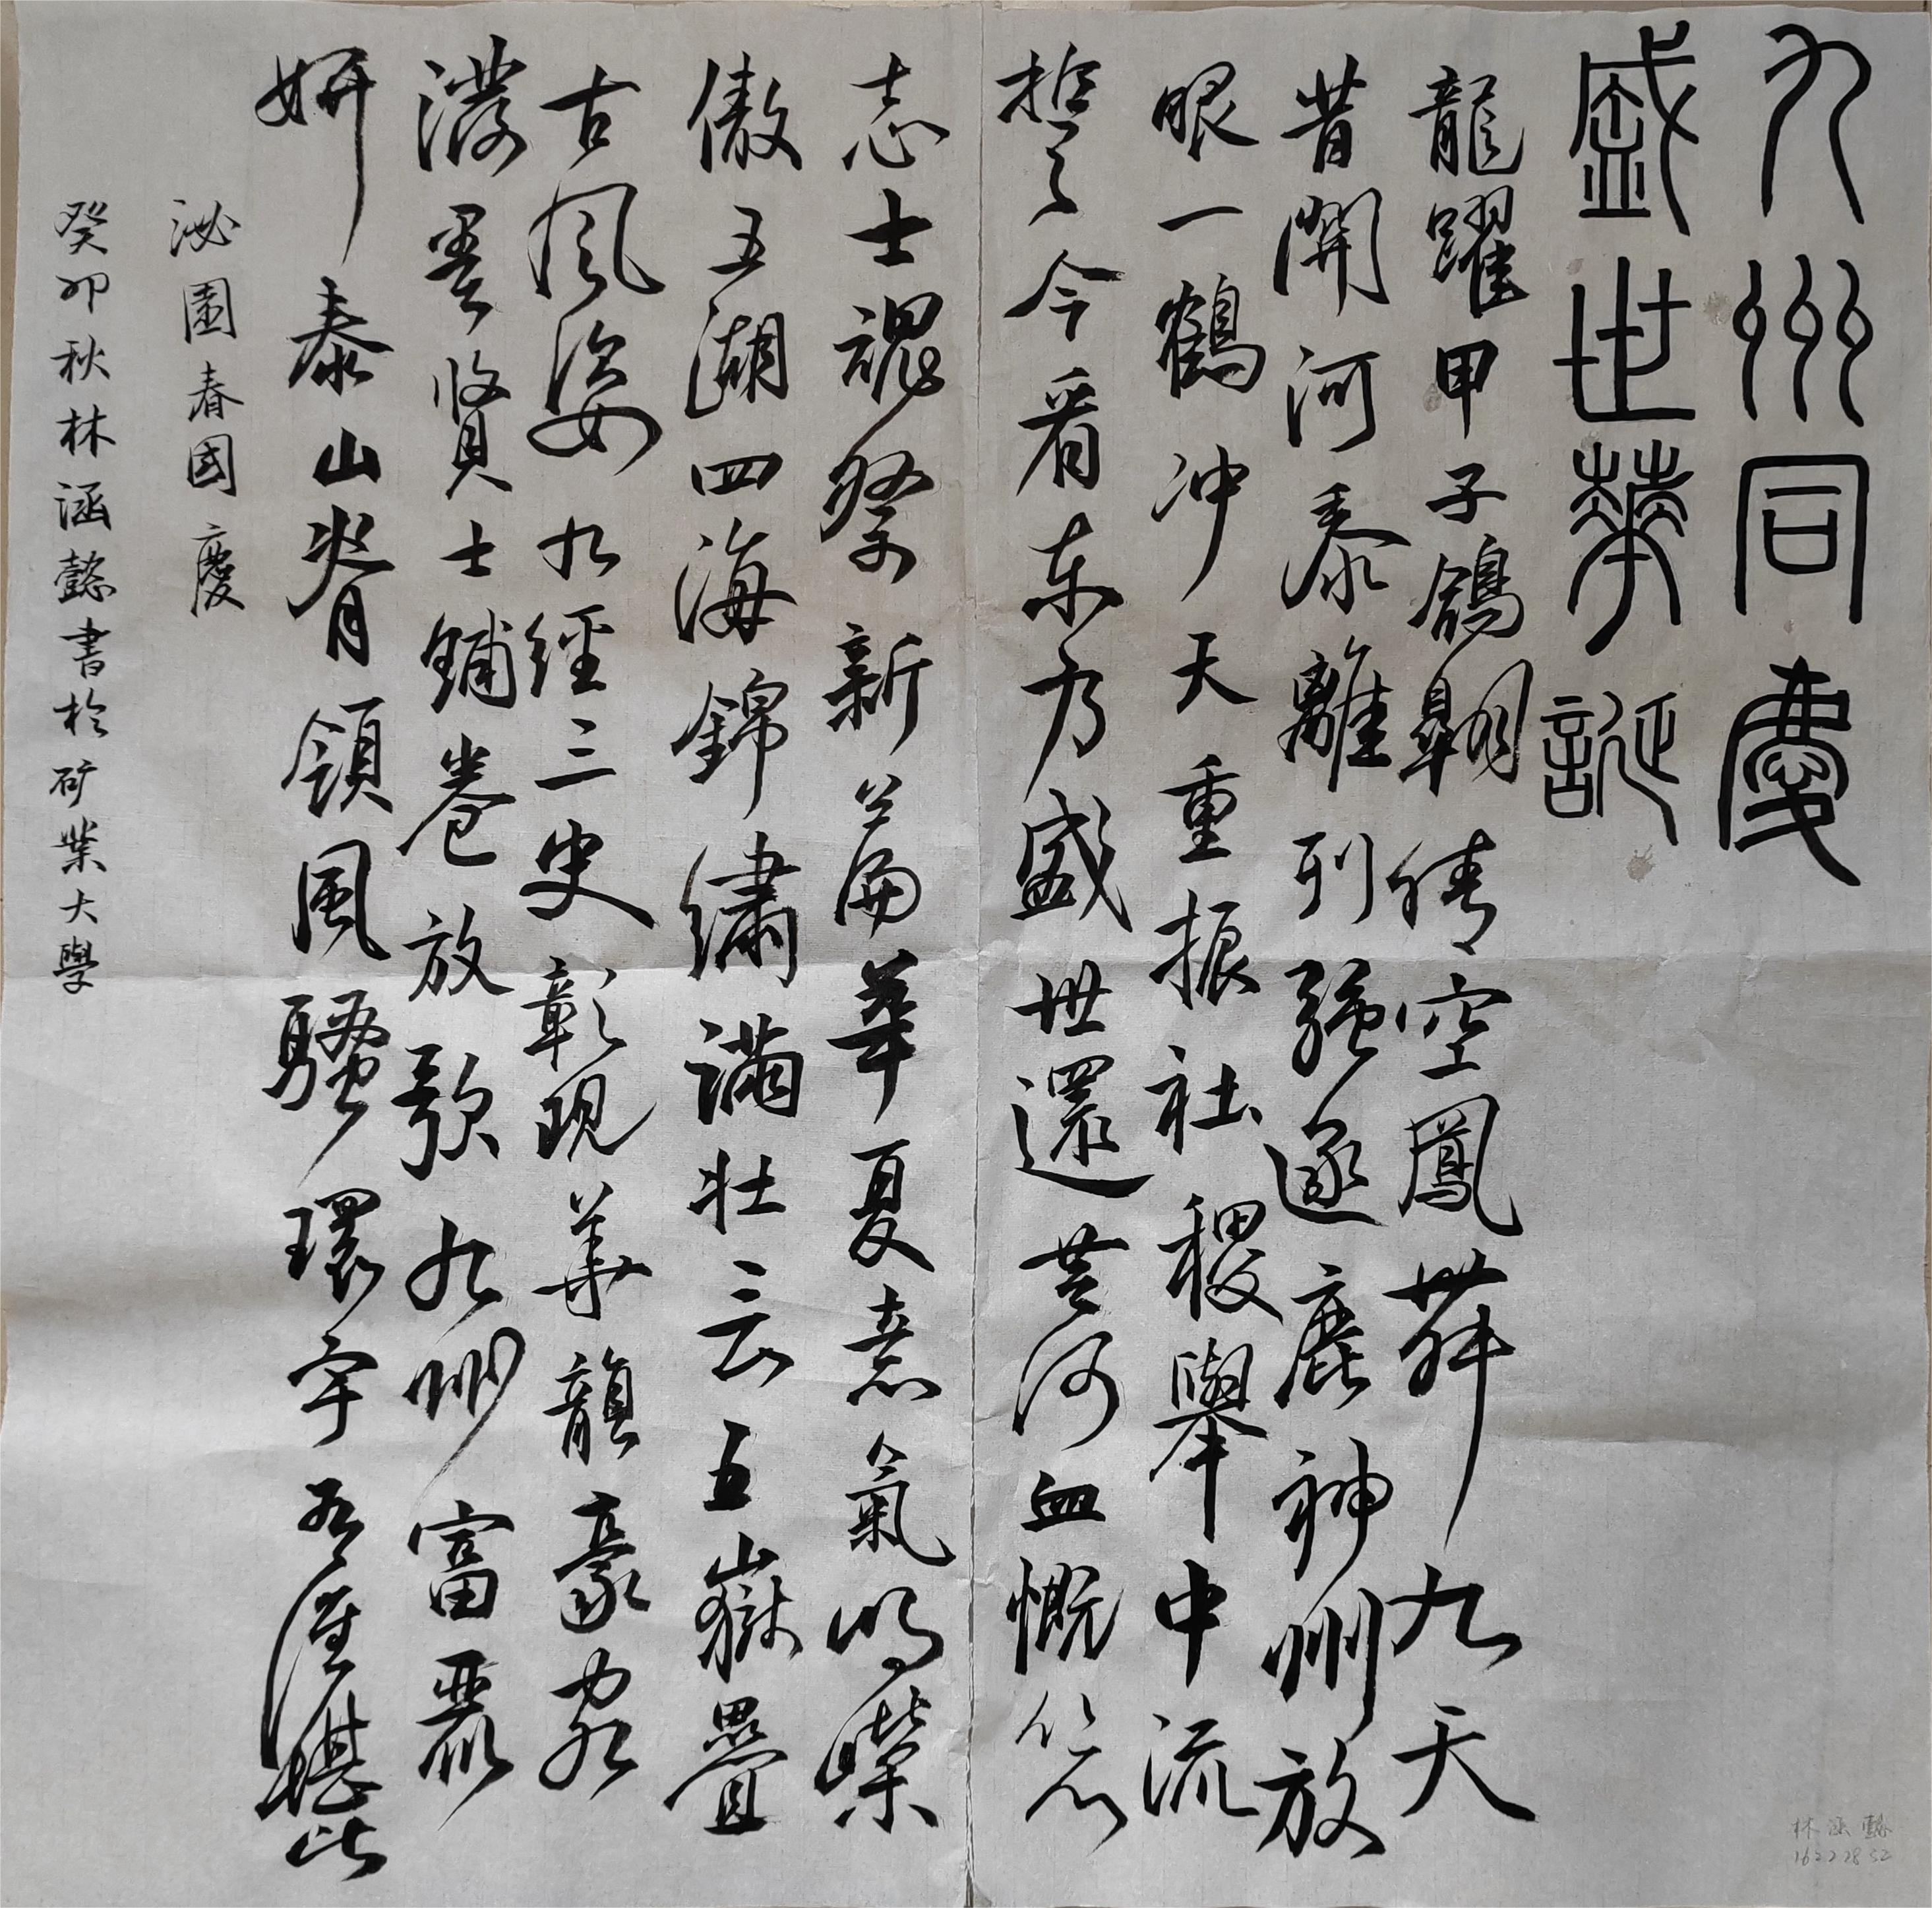 九州同慶
盛世華誕
龍躍甲子鴿翱晴空鳳舞九天
昔開河黍離列强逐鹿神州放
眼一鶴冲天重振社稷舉中流
誓今看东方盛世還黄河血慨
志士魂祭新篇華夏意氣
傲五湖四海錦繡满壮三五嶽疊
古风姿九經三史彰現華韻豪
潑墨賢士鋪卷放歌九州富麗
妍泰山脊領風騷環宇吾谁堪比
沁園春國慶
癸卯秋林涵懿書於矿業大學
林涵懿
16222832